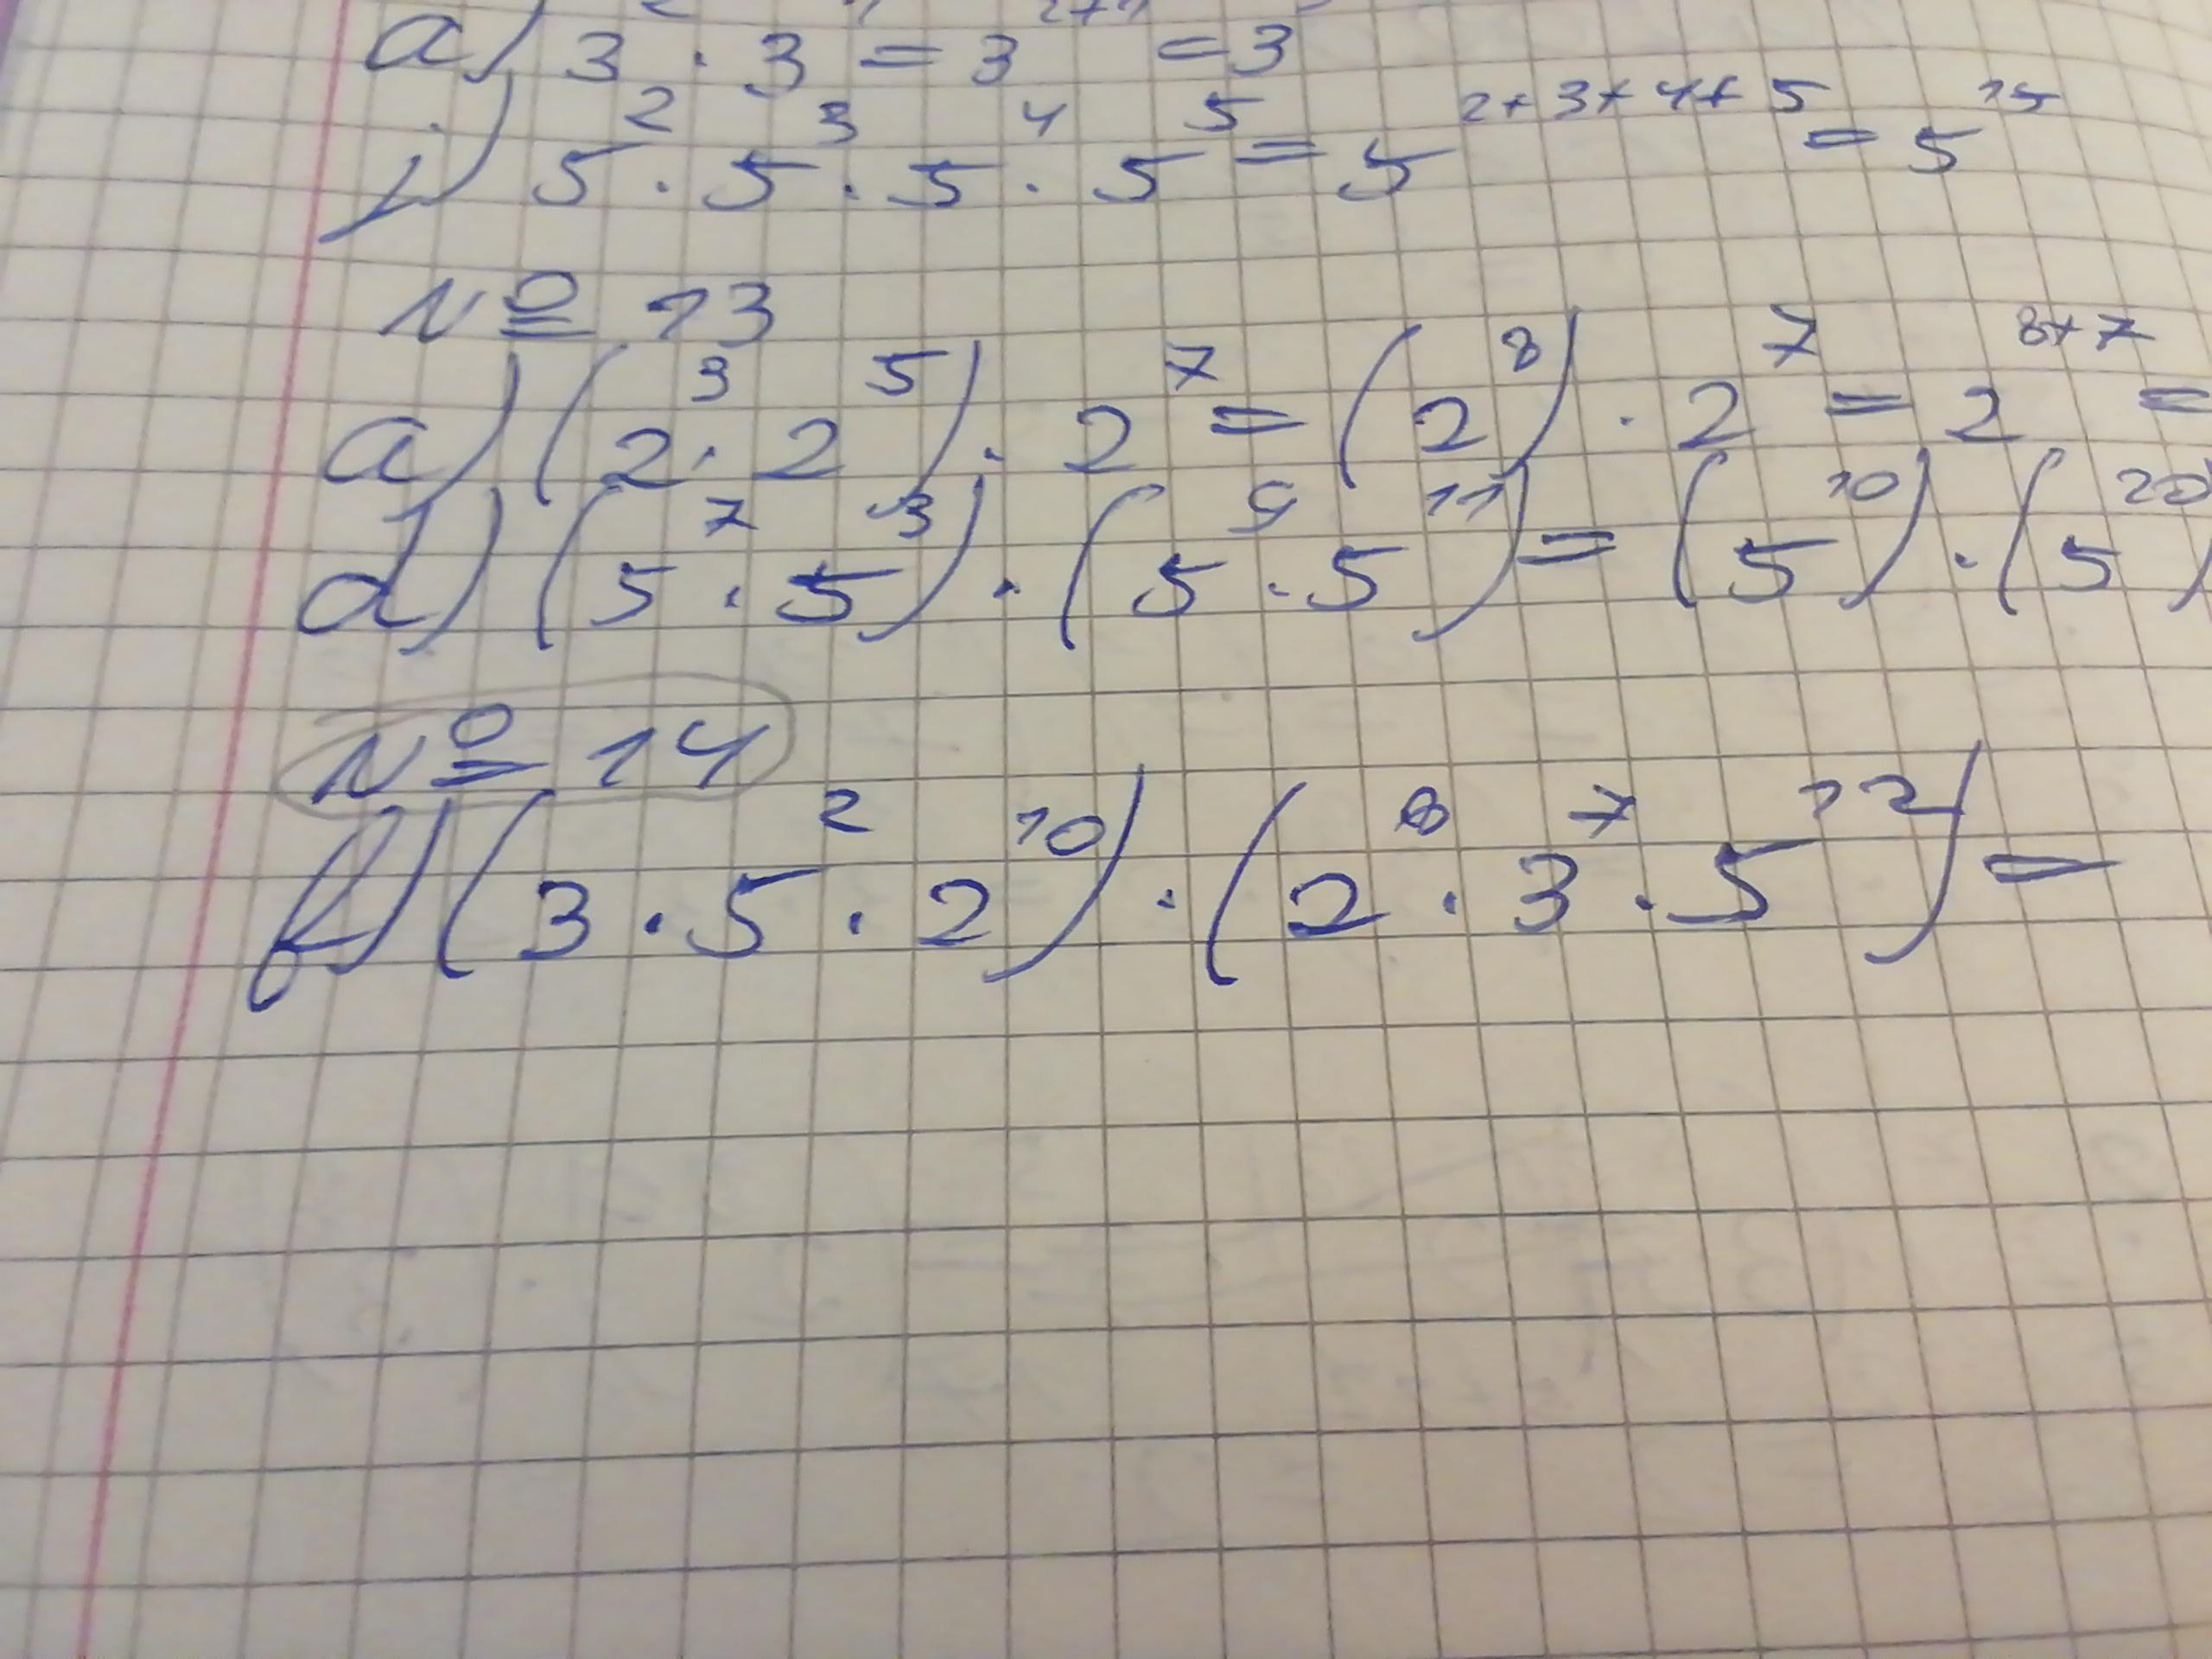 a) 3² · 3 = 3²⁺¹ = 3
j) 5² · 5³ · 5⁴ · 5⁵ = 5²⁺³⁺⁴⁺⁵ = 5¹⁵
Nº 13
a) (2³ · 2⁵) · 2⁷ = (2⁸) · 2⁷ = 2⁸⁺⁷ =
d) (5⁷ · 5³) · (5⁹ · 5¹¹) = (5¹⁰) · (5²⁰)
Nº 14
f) (3 · 5² · 2¹⁰) · (2⁸ · 3⁷ · 5¹²) =